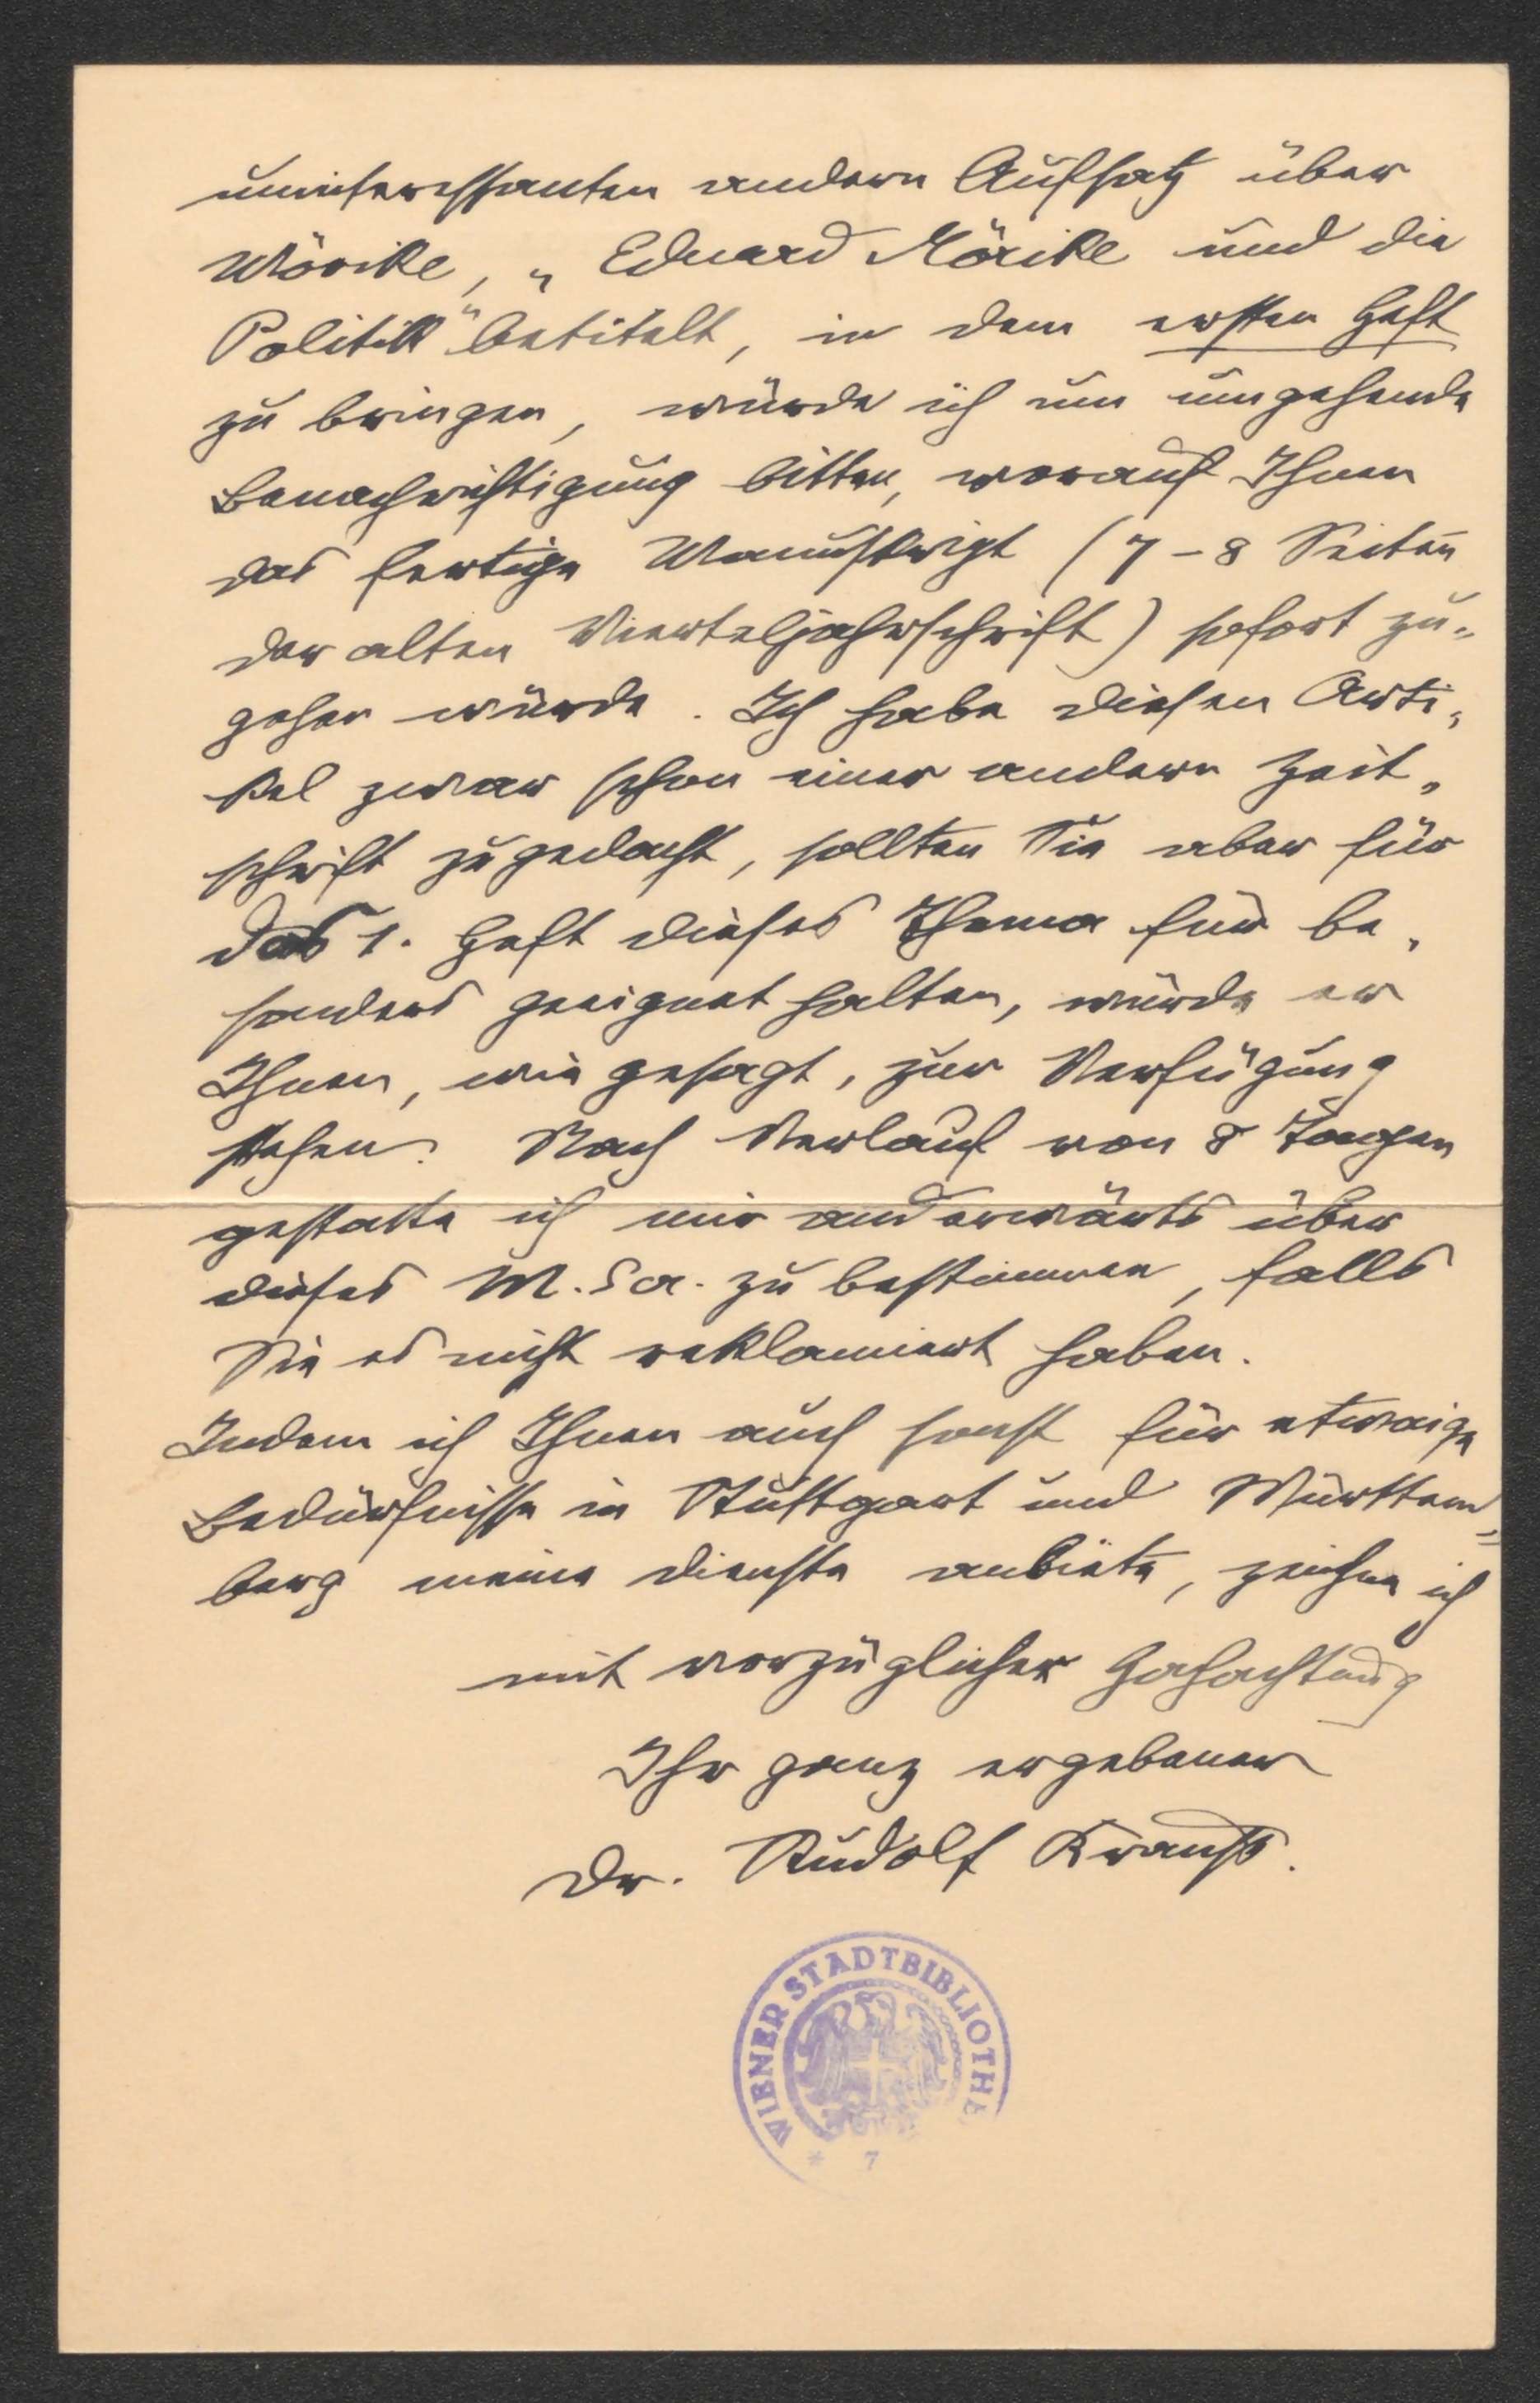 uninteressanten andern Aufsatz über
Mörike, „Eduard Mörike und die
Politik" betitelt, in dem ersten Heft
zu bringen, würde ich um umgehende
Benachrichtigung bitten, worauf Ihnen
das fertige Manuskript (7-8 Seiten
der alten Vierteljahrschrift) sofort zu-
gehen würde. Ich habe diesen Arti-
kel zwar schon einer andern Zeit-
schrift zugedacht, sollten Sie aber für
das 1. Heft dieses Thema für be-
sonders geeignet halten, würde er
Ihnen, wie gesagt, zur Verfügung
stehen. Nach Verlauf von 8 Tagen
gestatte ich mir anderwärts über
dieses M.Scr. zu bestimmen, falls
Sie es nicht reklamiert haben.
Indem ich Ihnen auch sonst für etwaige
Bedürfnisse in Stuttgart und Württem-
berg meine Dienste anbiete, zeichne ich
mit vorzüglicher Hochachtung
Ihr ganz ergebener
Dr. Rudolf Krauß.
WIENER STADTBIBLIOTHE
* 7